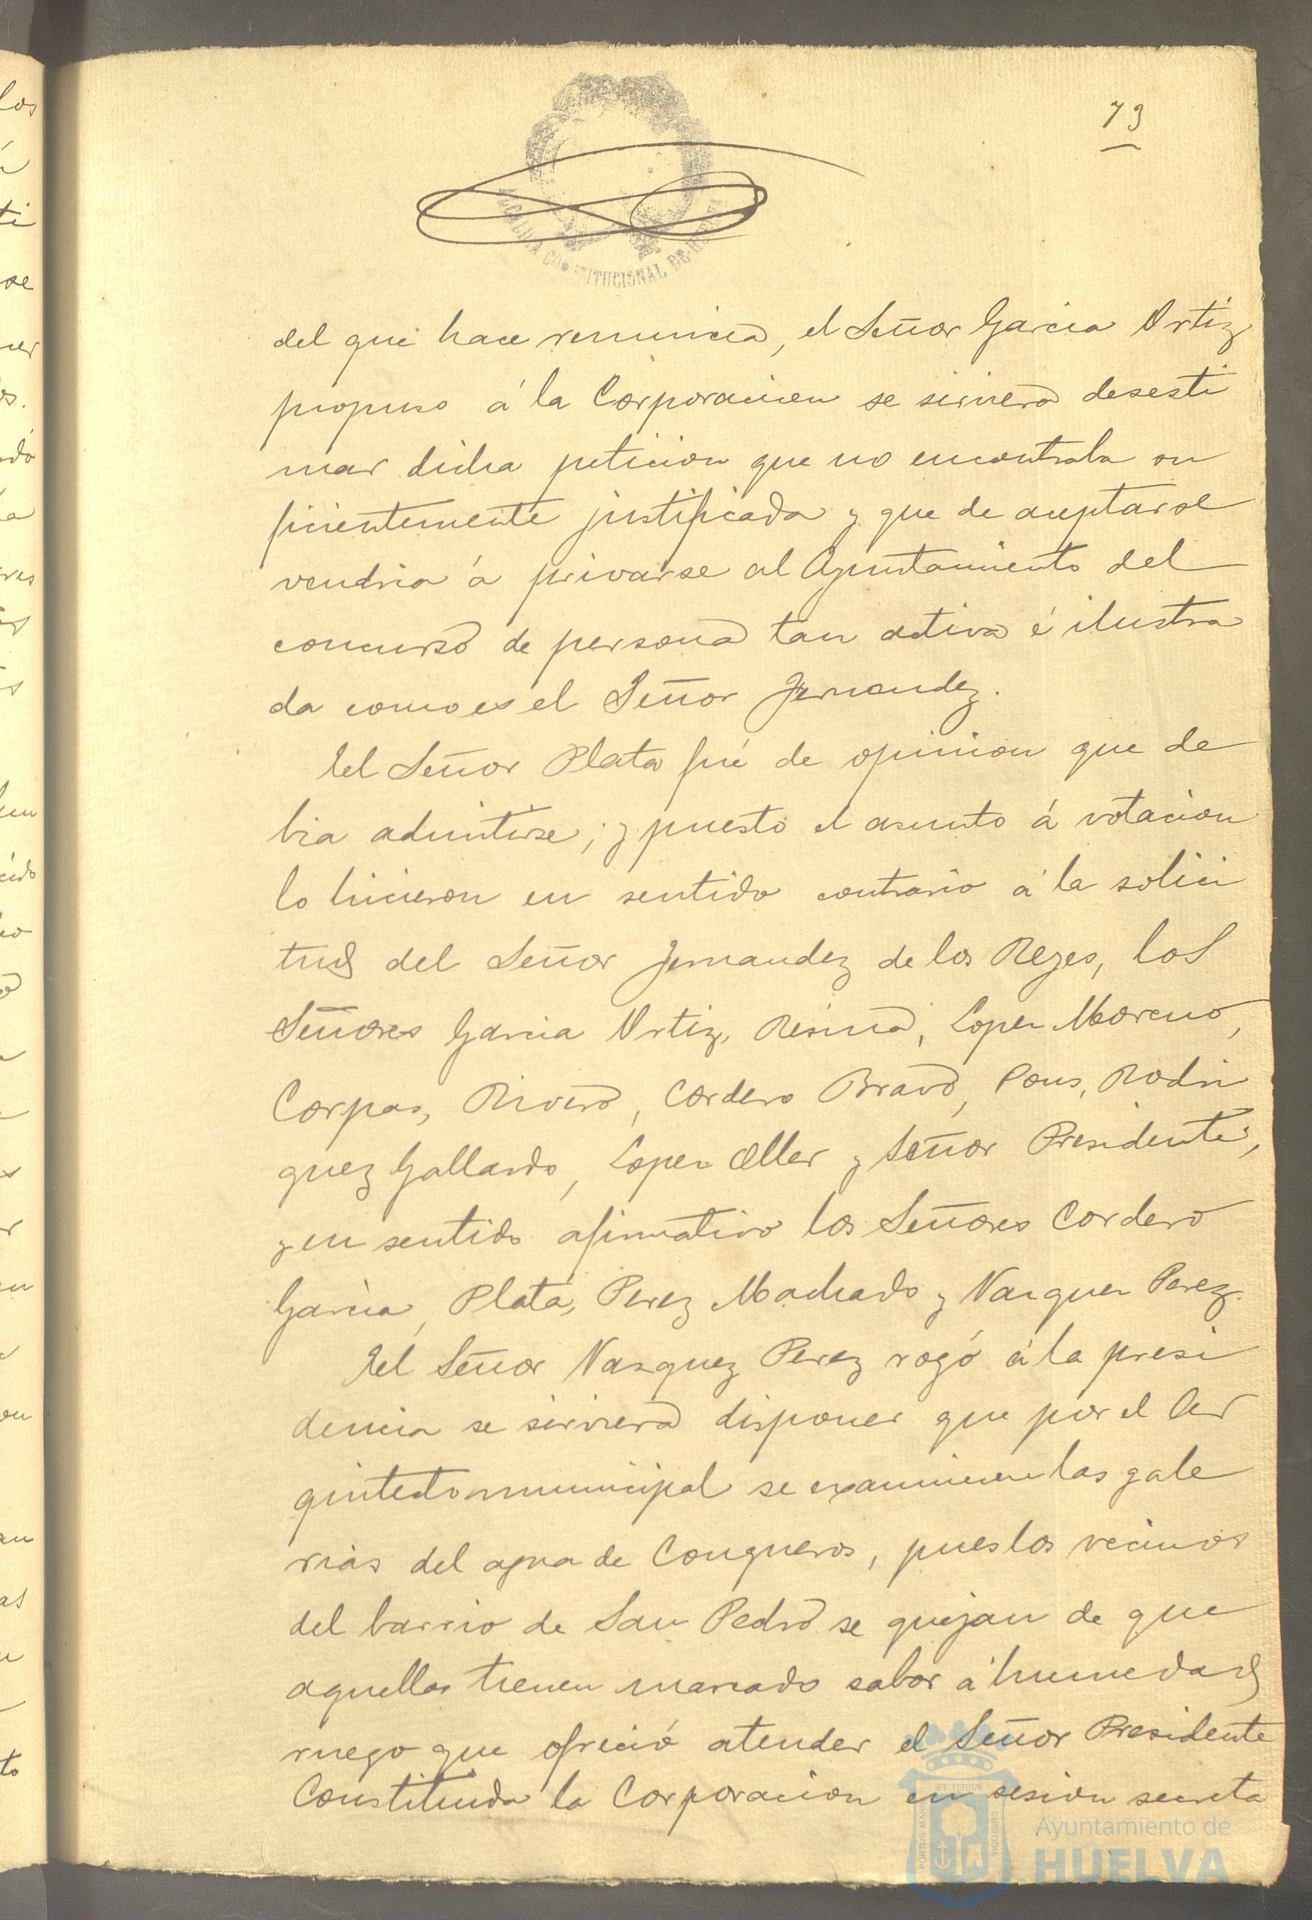 73
ALCALDIA CONSTITUCIONAL DE HUELVA
del que hace renuncia, el Señor Garcia Ortiz
propuso á la Corporacion se sirviera desesti
mar dicha peticion que no encontraba su
ficientemente justificada y que de aceptarse
vendria á privarse al Ayuntamiento del
concurso de persona tan activa é ilustra
da como es el Señor Fernandez.
El Señor Plata fué de opinion que de
bia admitirse; y puesto el asunto á votacion
lo hicieron en sentido contrario á la solici
tud del Señor Fernandez de los Reyes, los
Señores Garcia Ortiz, Resina, Lopez Moreno,
Corpas, Rivero, Cordero Bravo, Pons, Rodri
guez Gallardo, Lopez Oller y Señor Presidente,
y en sentido afirmativo los Señores Cordero
Garcia, Plata, Perez Machado y Vazquez Perez.
El Señor Vazquez Perez rogó á la presi
dencia se sirviera disponer que por el Ar
quitecto municipal se examinen las gale
rias del agua de Conqueros, pues los vecinos
del barrio de San Pedro se quejan de que
aquellas tienen marcado sabor á humedad
ruego que ofreció atender el Señor Presidente
Constituida la Corporacion en sesion secreta
Ayuntamiento de
HUELVA